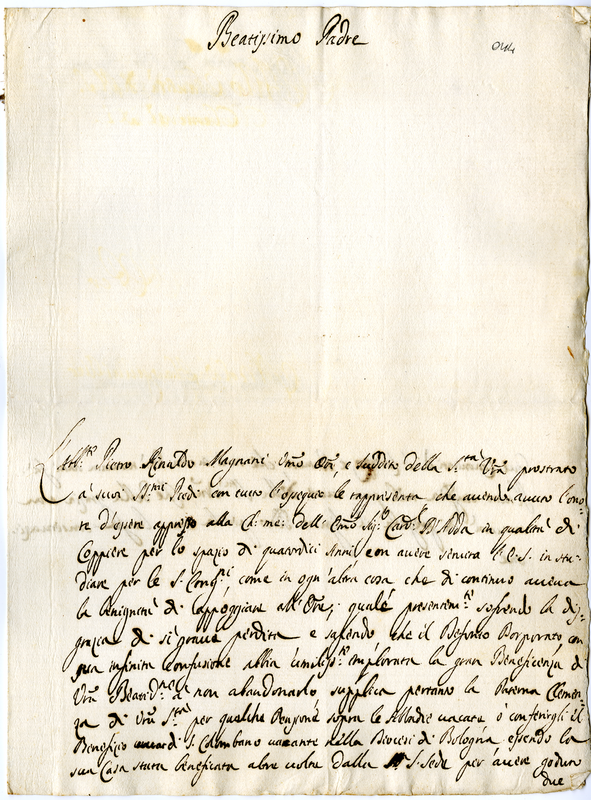 Beatissimo Padre
044
L'Abb.te Pietro Rinaldo Magnani Um.o Ore, e suddito della S.tà V.ra prostrato
a' suoi S.mi Piedi con tutto l'osequio le rappresenta che avendo avuto l'ono-
re d'essere appresso alla Ch: me: dell' Emo Sig.r Card.l D'Adda in qualità di
Coppiere per lo spazio di quatordici Anni, con avere servita l'E.S. in stu-
diare per le S. Cong.ni come in ogn'altra cosa che di continuo aveva
la benignità di appoggiare all'Ore, quale presentem.te sofrendo la dis-
grazia di sì grave perdita e sapendo che il Defonto Porporato con
sua infinita confusione abbia umilis.te implorata la gran Beneficenza di
V.ra Beatid.ne a non abandonarlo supplica pertanto la Paterna Clemen-
za di V.ra S.tà per qualche Pensione sopra le Abbadie vacate o conferirgli il
Beneficio di S. Colombano vacante nella Diocesi di Bologna essendo la
sua Casa stata beneficata altre volte dalla S. Sede per avere goduto
due